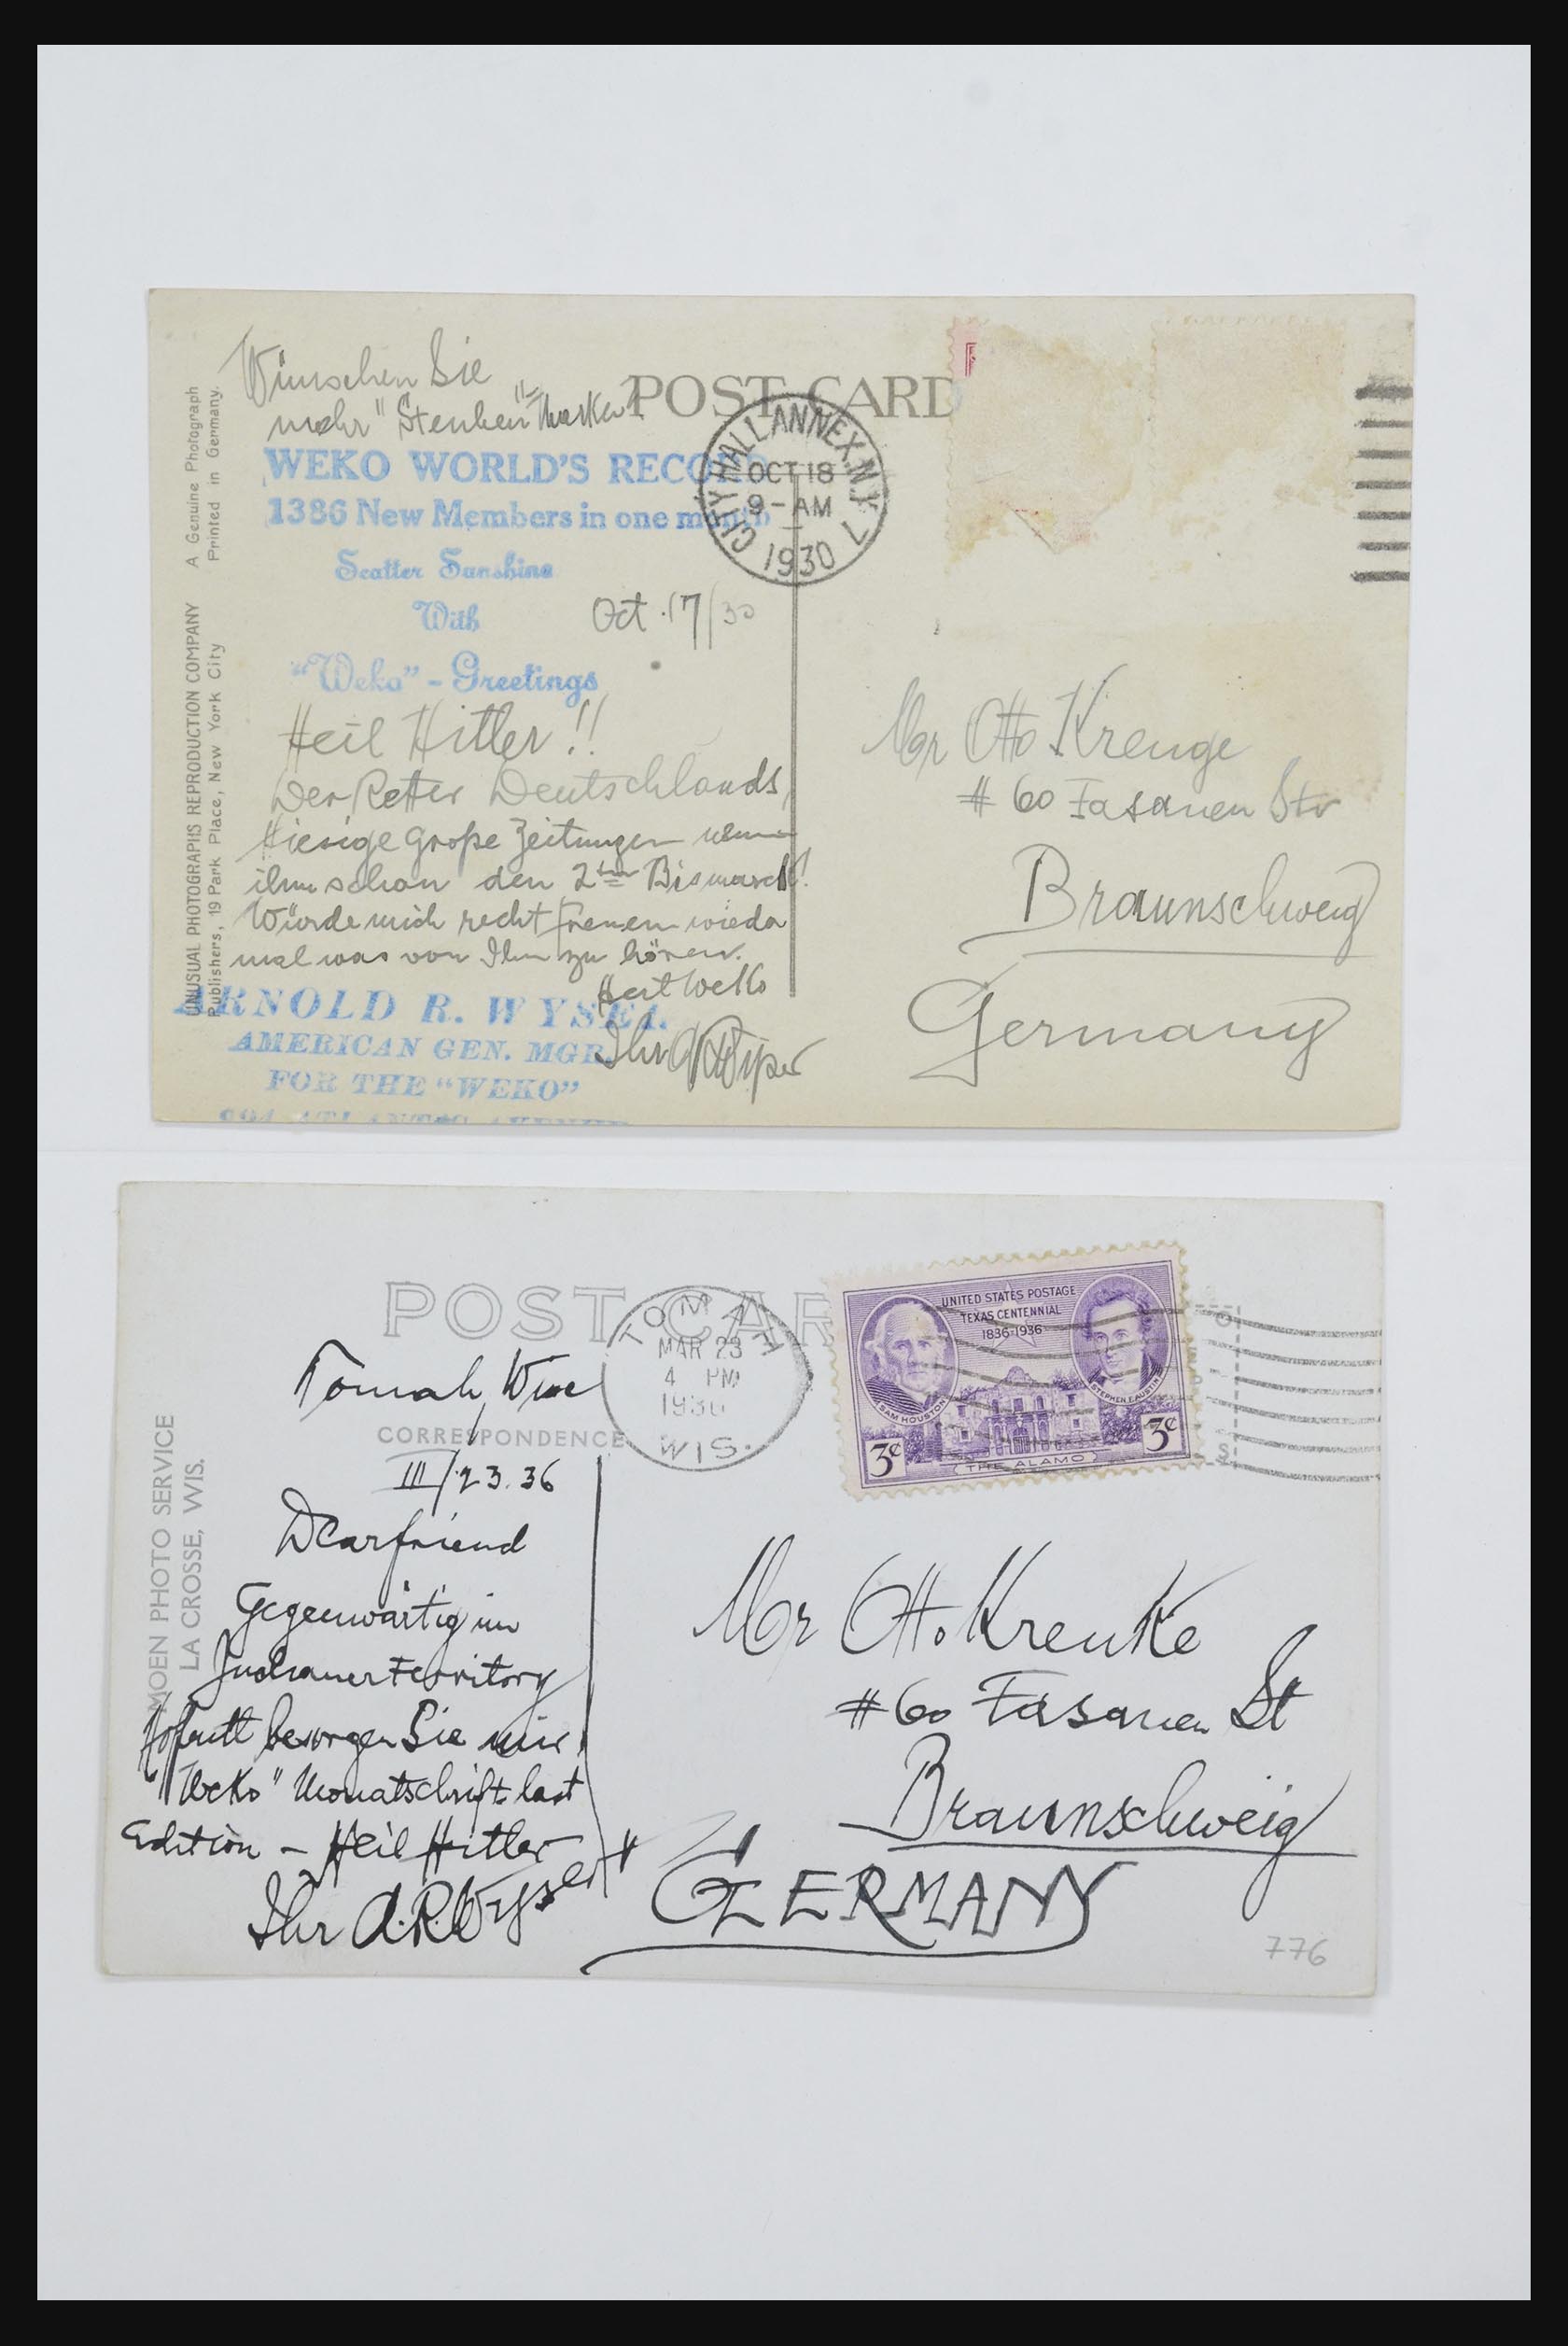 Wünschen Sie
mehr "Steuben" Marken?
POST CARD
WEKO WORLD'S RECORD
1386 New Members in one month
Scatter Sunshine
With
"Weko" - Greetings
Oct. 17/30
CITY HALL ANNEX. N.Y. 7
OCT 18
9-AM
1930
Heil Hitler!!
Der Retter Deutschlands,
Hiesige große Zeitungen
ihn schon den 2ten Bismarck!
Würde mich recht freuen wieder
mal was von Ihn zu hören.
Weko
Ihr
ARNOLD R. WYSEL
AMERICAN GEN. MGR.
FOR THE "WEKO"
ATLANTIC AVENUE
A Genuine Photograph
Printed in Germany.
UNUSUAL PHOTOGRAPHS REPRODUCTION COMPANY
Publishers, 19 Park Place, New York City
Mr Otto Krenge
# 60 Fasanen Str
Braunschweig
Germany
POST CAR
TOMAH
MAR 23
4 PM
1936
WIS.
UNITED STATES POSTAGE
TEXAS CENTENNIAL
1836-1936
SAM HOUSTON
STEPHEN F. AUSTIN
3¢
3¢
THE ALAMO
Tomah, Wisc
CORRESPONDENCE
III/23.36
Dear friend
Gegenwärtig im
Indianer Territory
besorgen Sie mir
"Weko" Monatschrift last
Edition - Heil Hitler
Ihr A.R. Wysel
MOEN PHOTO SERVICE
LA CROSSE, WIS.
Mr Otto Krenke
# 60 Fasanen St
Braunschweig
GERMANY
776